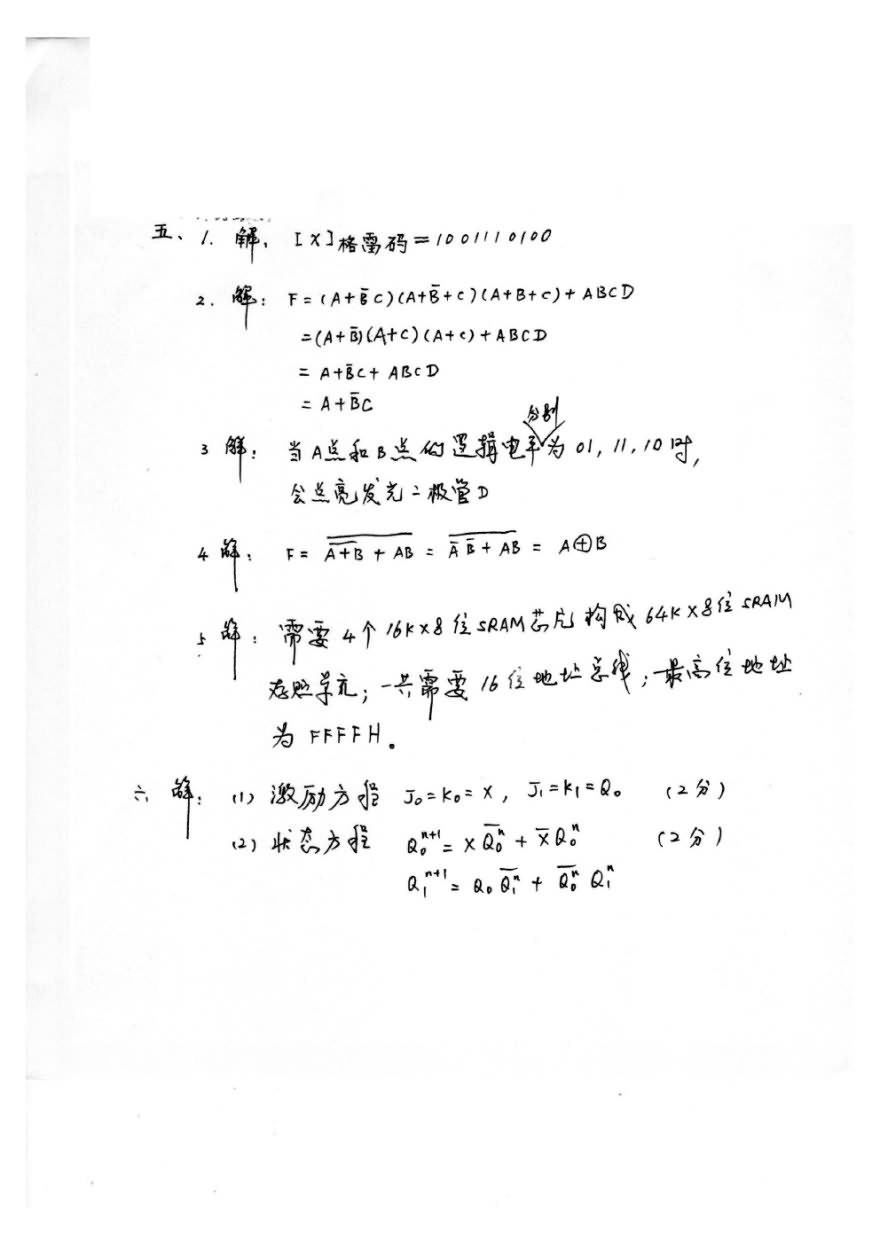 五、1. 解: [X]格雷码=1001110100
2. 解: F=(A+B̅C)(A+B̅+C)(A+B+C)+ABCD
=(A+B̅)(A+C)(A+C)+ABCD
= A+B̅C+ABCD
= A+B̅C
分别
3 解: 当A点和B点的逻辑电平为01, 11, 10时,
会点亮发光二极管D
4 解: F= \overline{\overline{A+B} + AB} = \overline{A̅ B̅ + AB} = A⊕B
5 解: 需要4个16K×8位SRAM芯片构成64K×8位SRAM
存贮单元; 一共需要16位地址总线; 最高位地址
为FFFFH。
六 解: (1) 激励方程 J₀=K₀=X, J₁=K₁=Q₀ (2分)
(2) 状态方程 Q₀ⁿ⁺¹= X\overline{Q₀ⁿ} + X̅Q₀ⁿ (2分)
Q₁ⁿ⁺¹= Q₀\overline{Q₁ⁿ} + \overline{Q₀ⁿ} Q₁ⁿ